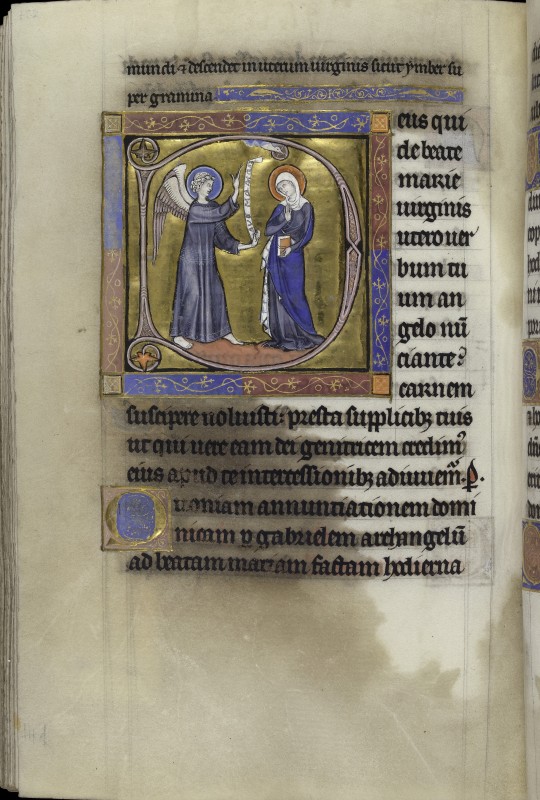 mundi ⁊ descendet in uterum uirginis sicut ymber su
per gramina
eus qui
de beate
marie
uirginis
utero uer
bum tu
um an
gelo nū
ciante?
carnem
suscipere uoluisti: presta supplicibꝫ tuis
ut qui uere eam dei genitricem credimꝰ
eius apud te intercessionibꝫ adiuuem̄.
uoniam annunciationem domi
nicam p gabrielem archangelū
ad beatam mariam factam hodierna